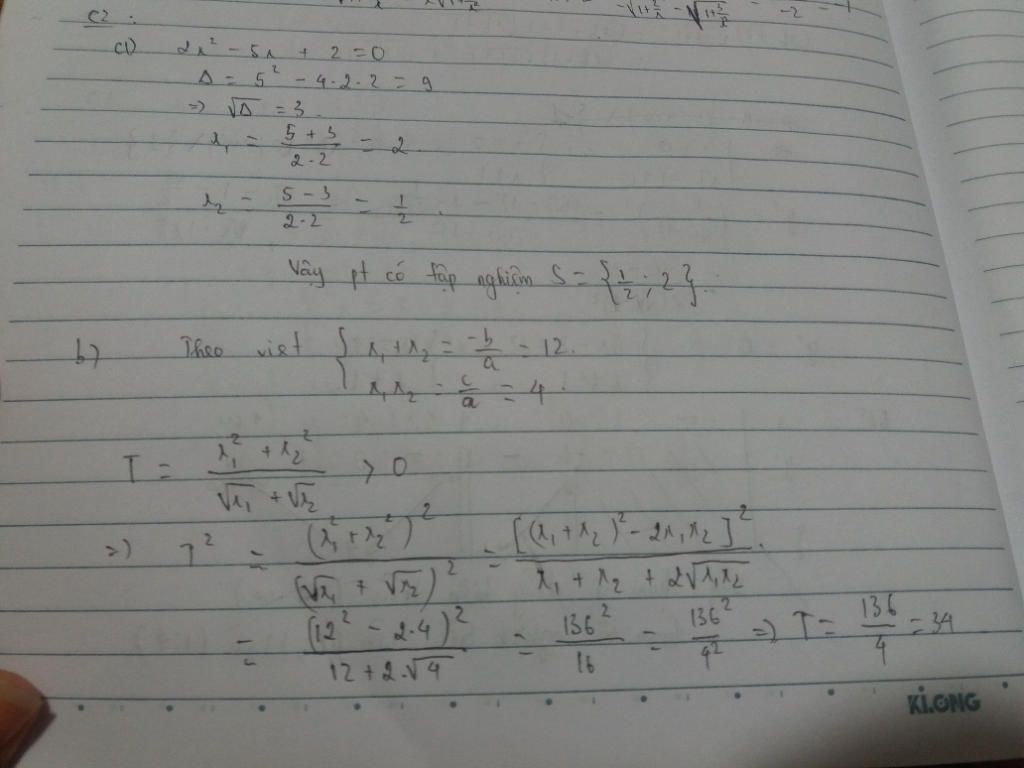 C2:
a) 2x² - 5x + 2 = 0
Δ = 5² - 4.2.2 = 9
=> √Δ = 3.
x₁ = (5 + 3)/(2.2) = 2.
x₂ = (5 - 3)/(2.2) = 1/2.
Vậy pt có tập nghiệm S = {1/2; 2}.
b) Theo viet { x₁ + x₂ = -b/a = 12.
x₁x₂ = c/a = 4.
T = (x₁² + x₂²)/(√x₁ + √x₂) > 0
=) T² = (x₁² + x₂²)²/(√x₁ + √x₂)² = [(x₁ + x₂)² - 2x₁x₂]²/(x₁ + x₂ + 2√x₁x₂).
= (12² - 2.4)²/(12 + 2.√4) = 136²/16 = 136²/4² => T = 136/4 = 34
KLONG